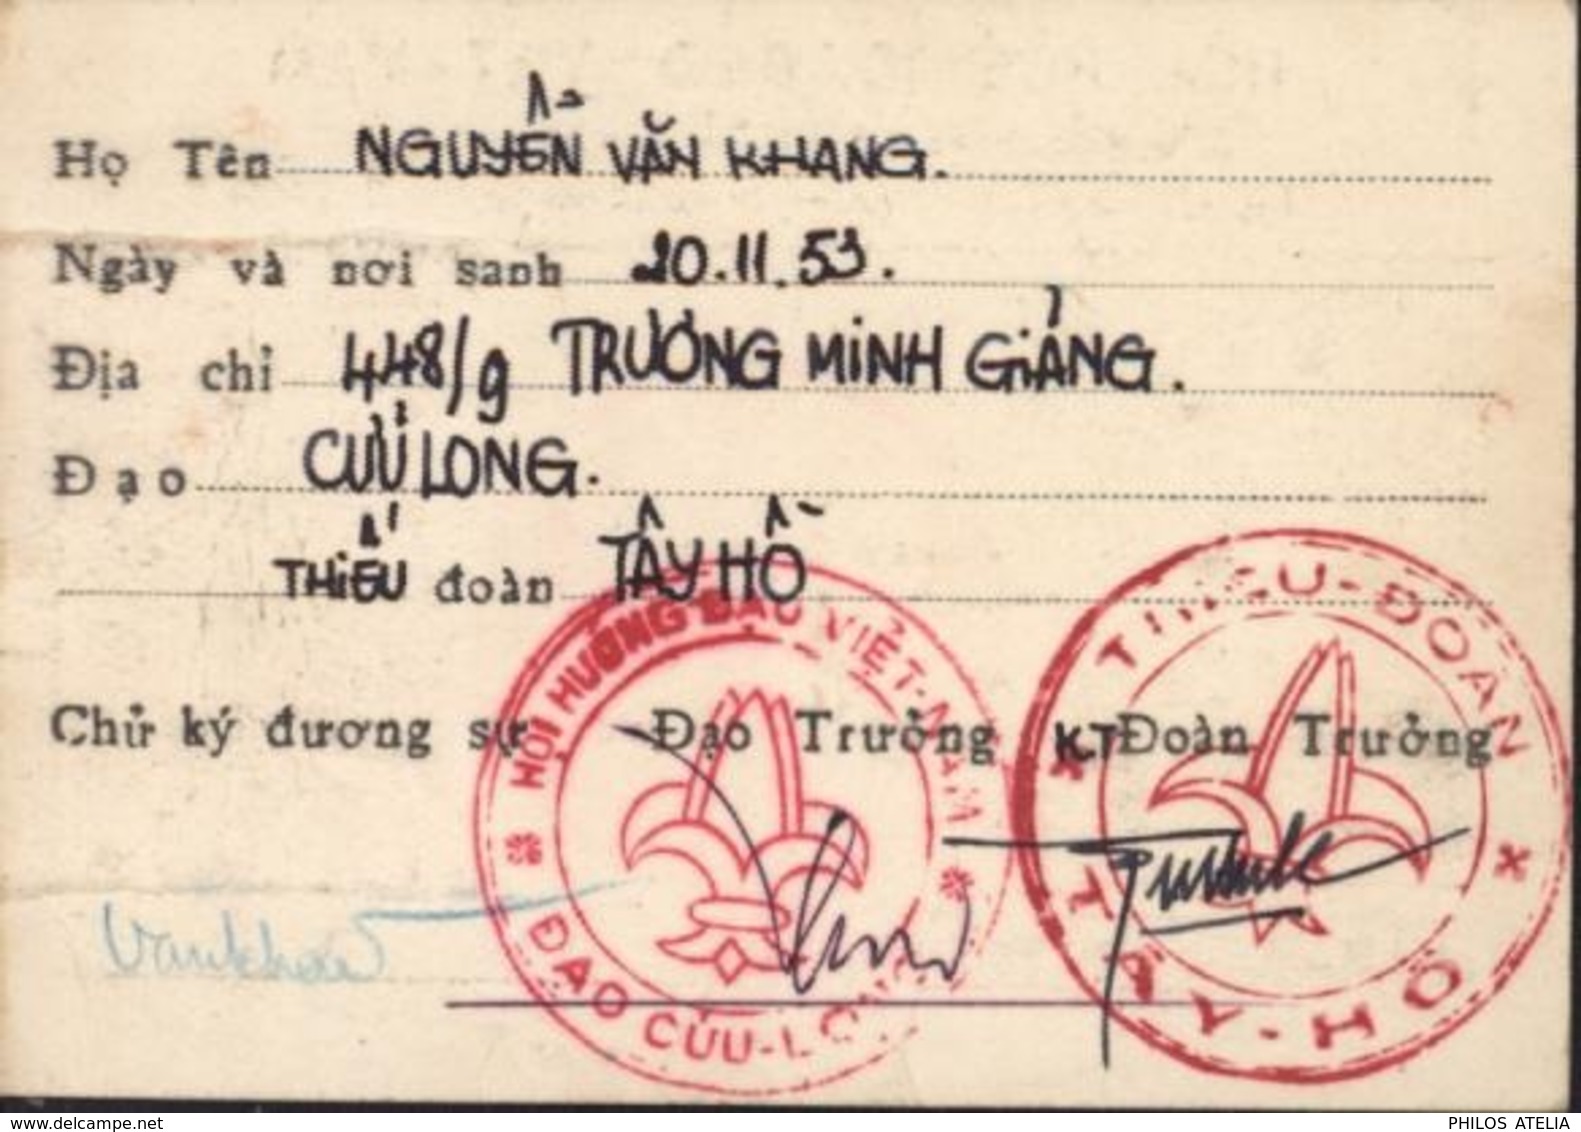 Họ Tên NGUYỄN VĂN KHANG.
Ngày và nơi sanh 20.11.53.
Địa chỉ 448/9 TRƯƠNG MINH GIẢNG.
Đạo CỬU LONG.
THIẾU đoàn TÂY HỒ
HỘI HƯỚNG ĐẠO VIỆT-NAM
ĐẠO CỬU-LONG
THIẾU-ĐOÀN
TÂY-HỒ
Chử ký đương sự Đạo Trưởng K.T Đoàn Trưởng
delcampe.net
PHILOS ATELIA